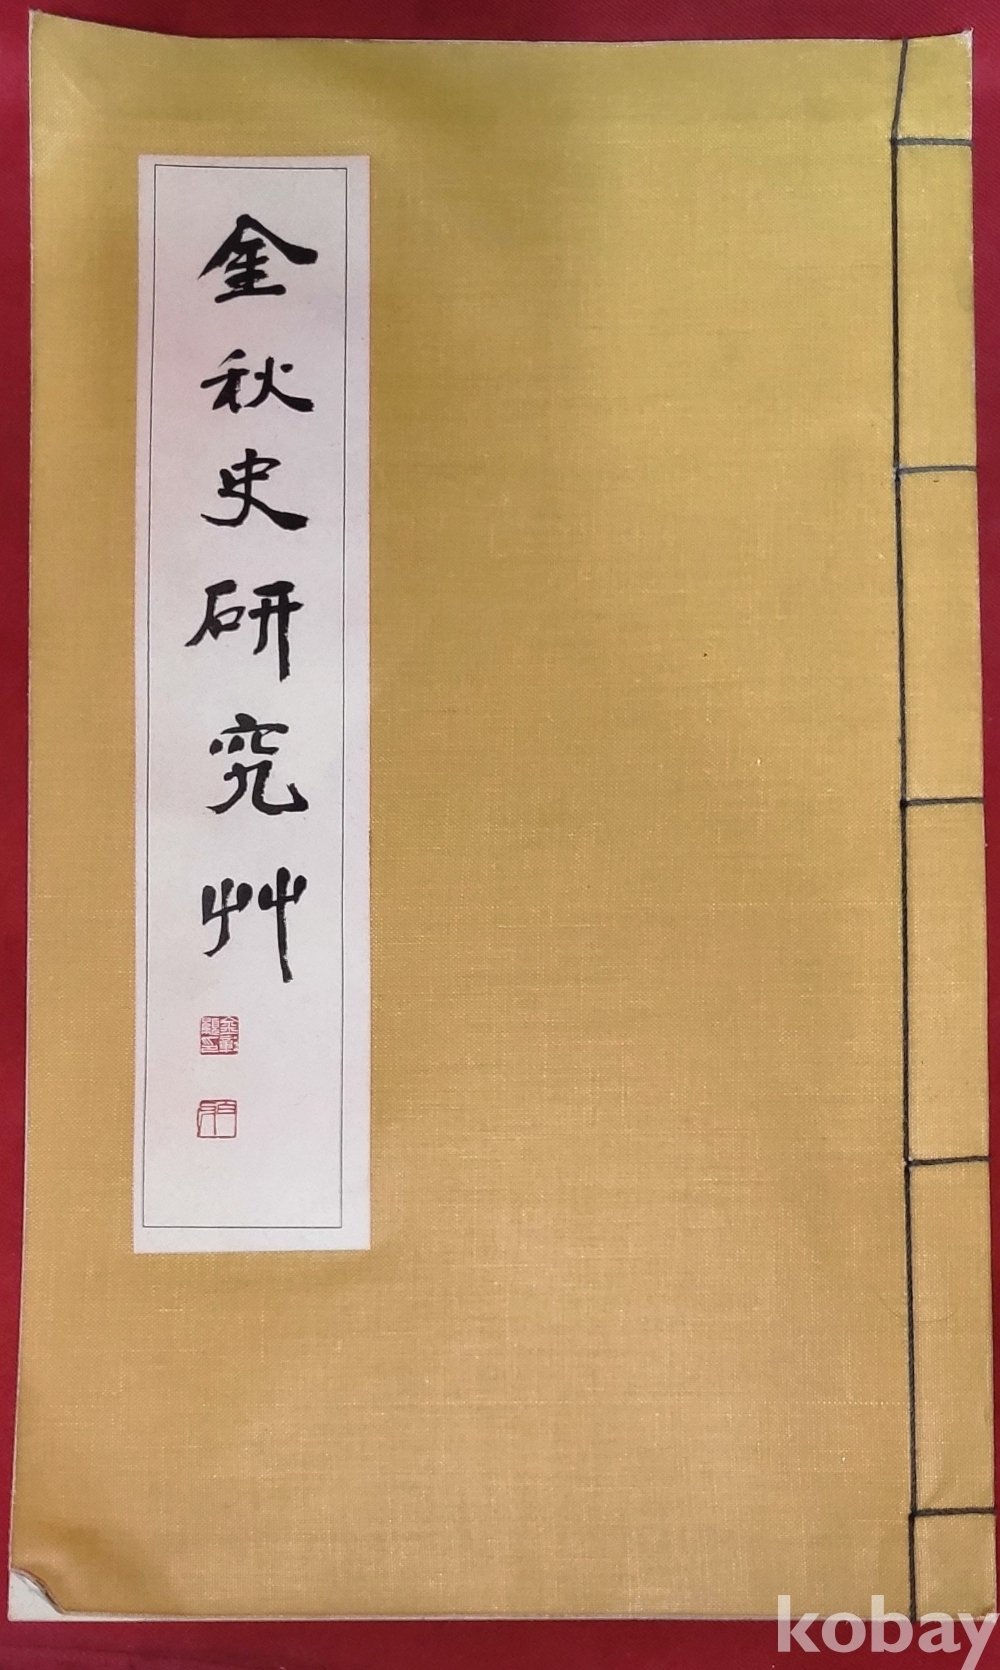 金秋史研究艸
kobay